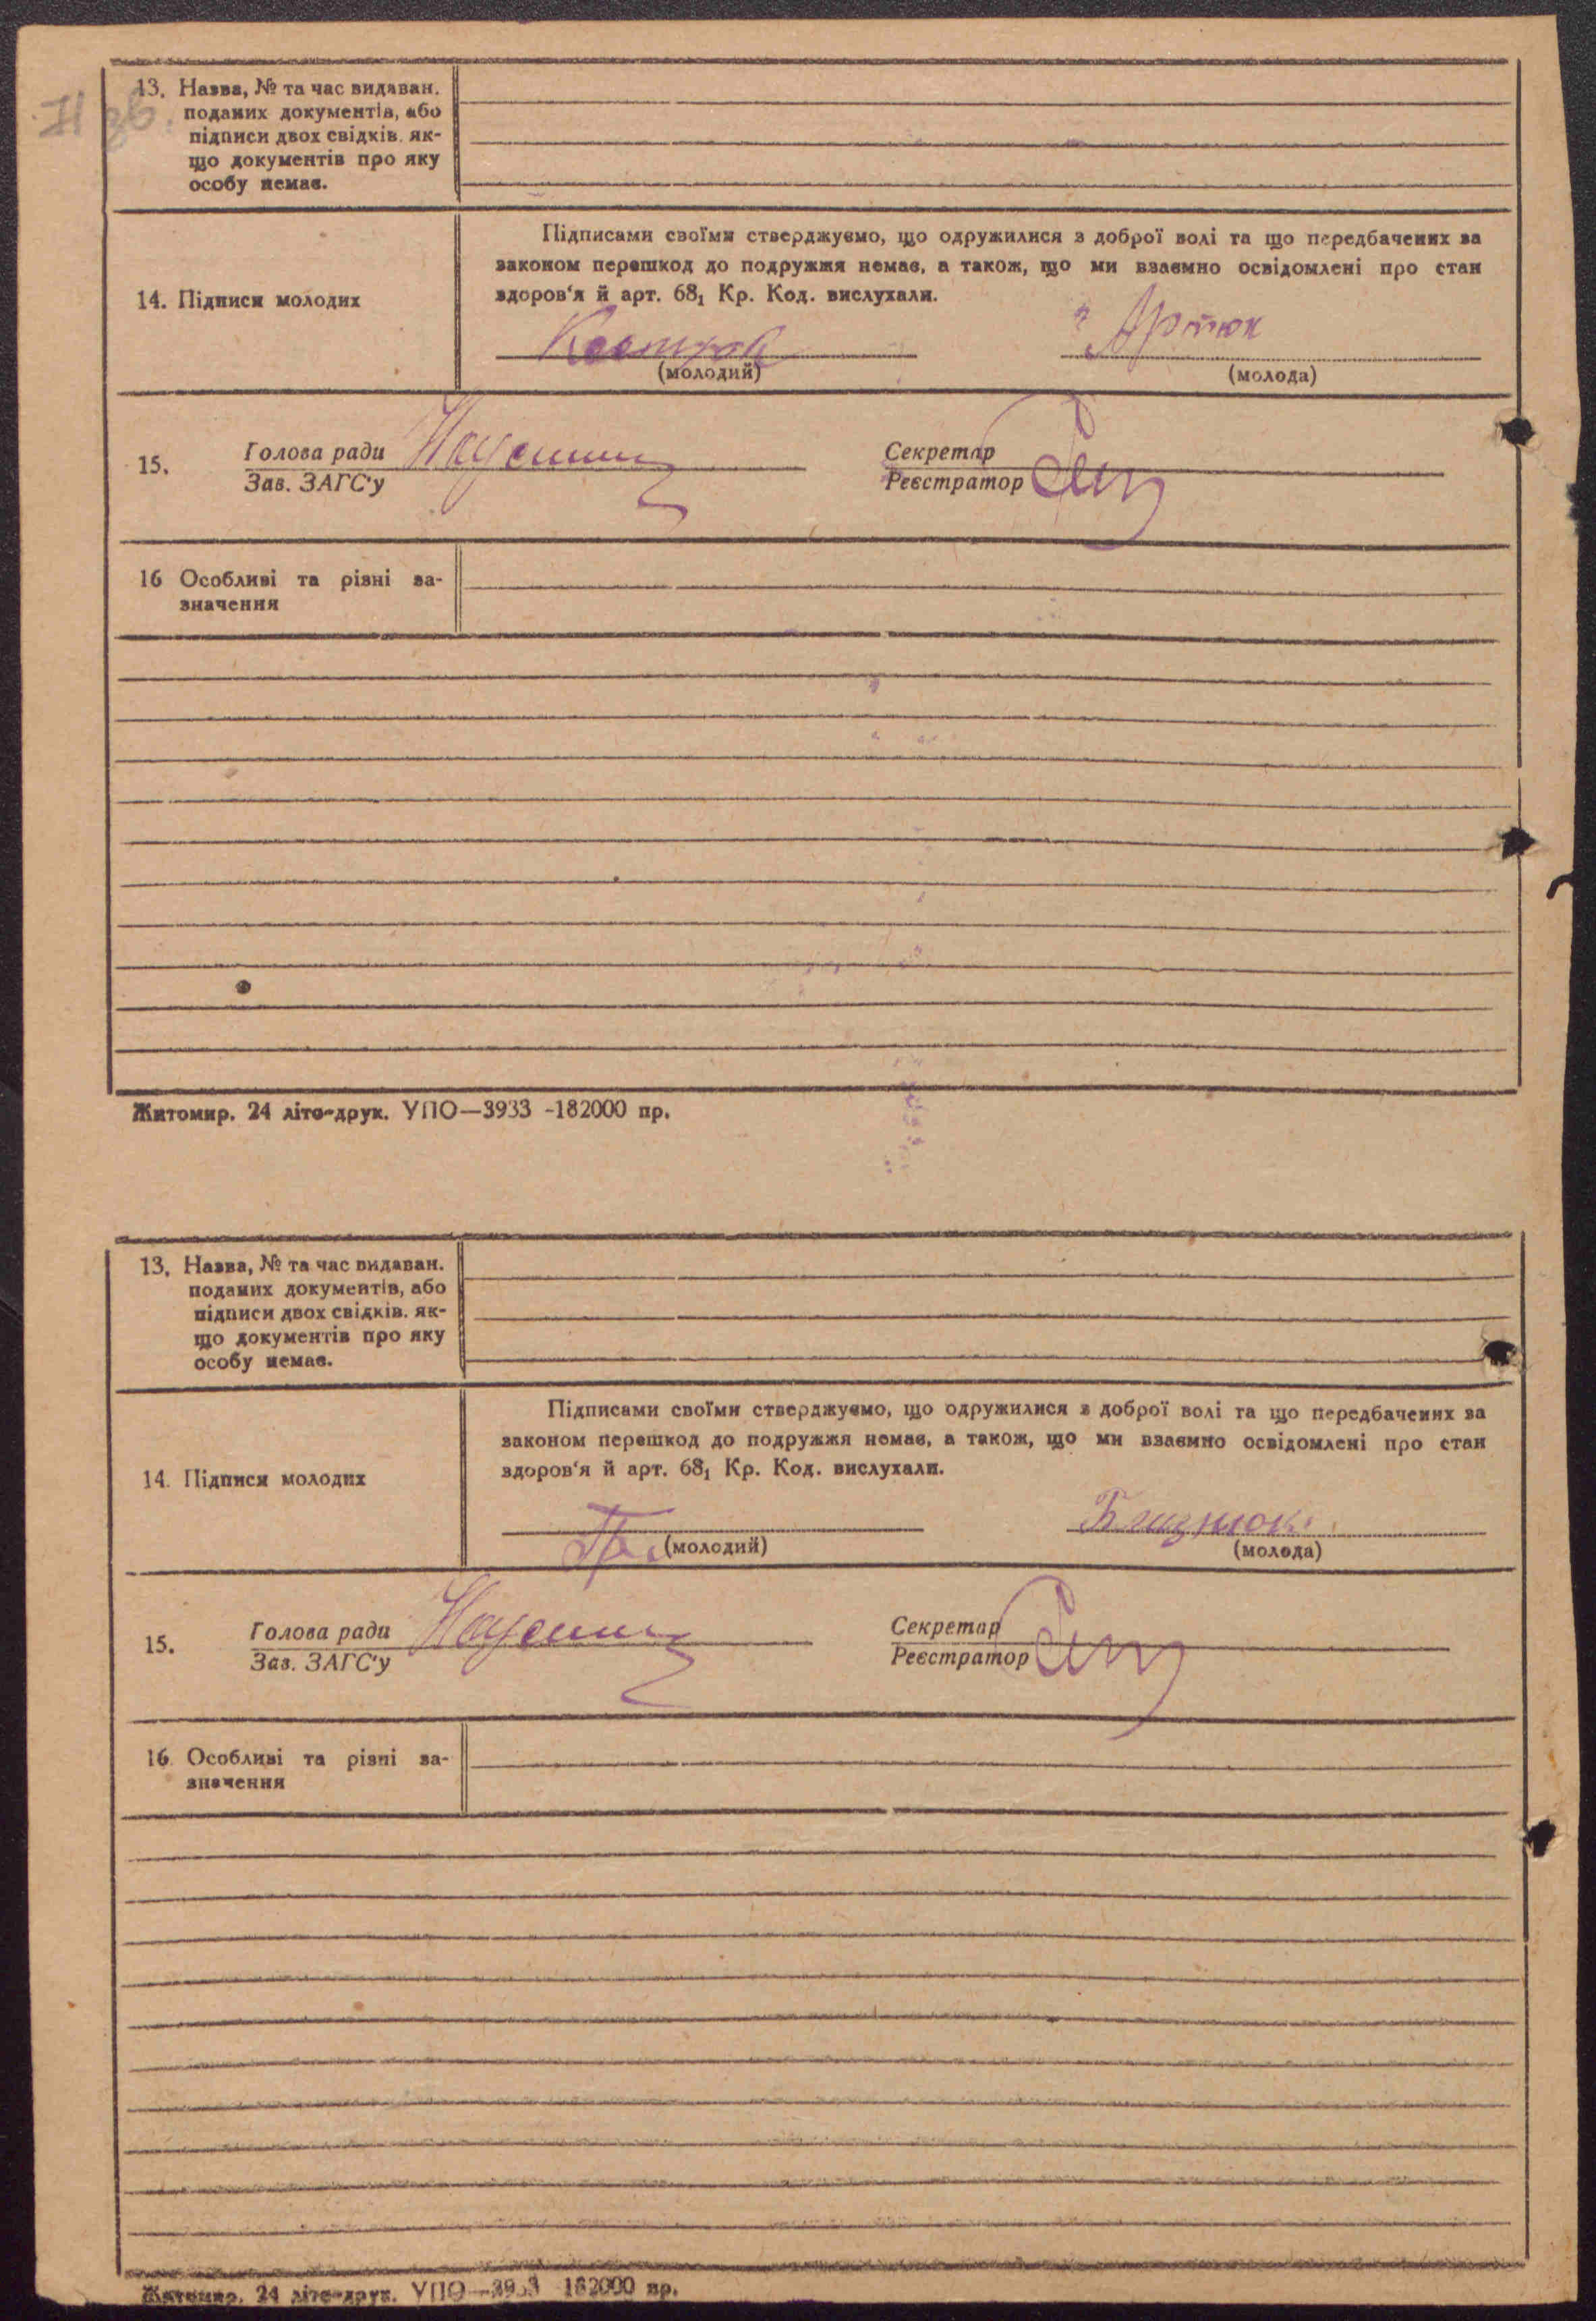 71 зв.
13. Назва, № та час видаван.
поданих документів, або
підписи двох свідків. як-
що документів про яку
особу немає.
Підписами своїми стверджуємо, що одружилися з доброї волі та що передбачених за
законом перешкод до подружжя немає, а також, що ми взаємно освідомлені про стан
14. Підписи молодих
здоров'я й арт. 68₁ Кр. Код. вислухали.
Артюх
(молодий)
(молода)
15.
Голова ради
Секретар
Зав. ЗАГС'у
Реєстратор
16 Особливі та різні за-
значення
Житомир. 24 літо-друк. УПО—3933 -182000 пр.
13. Назва, № та час видаван.
поданих документів, або
підписи двох свідків. як-
що документів про яку
особу немає.
Підписами своїми стверджуємо, що одружилися з доброї волі та що передбачених за
законом перешкод до подружжя немає, а також, що ми взаємно освідомлені про стан
14. Підписи молодих
здоров'я й арт. 68₁ Кр. Код. вислухали.
Близнюк
(молодий)
(молода)
15.
Голова ради
Секретар
Зав. ЗАГС'у
Реєстратор
16 Особливі та різні за-
значення
Житомир. 24 літо-друк. УПО—3933 182000 пр.